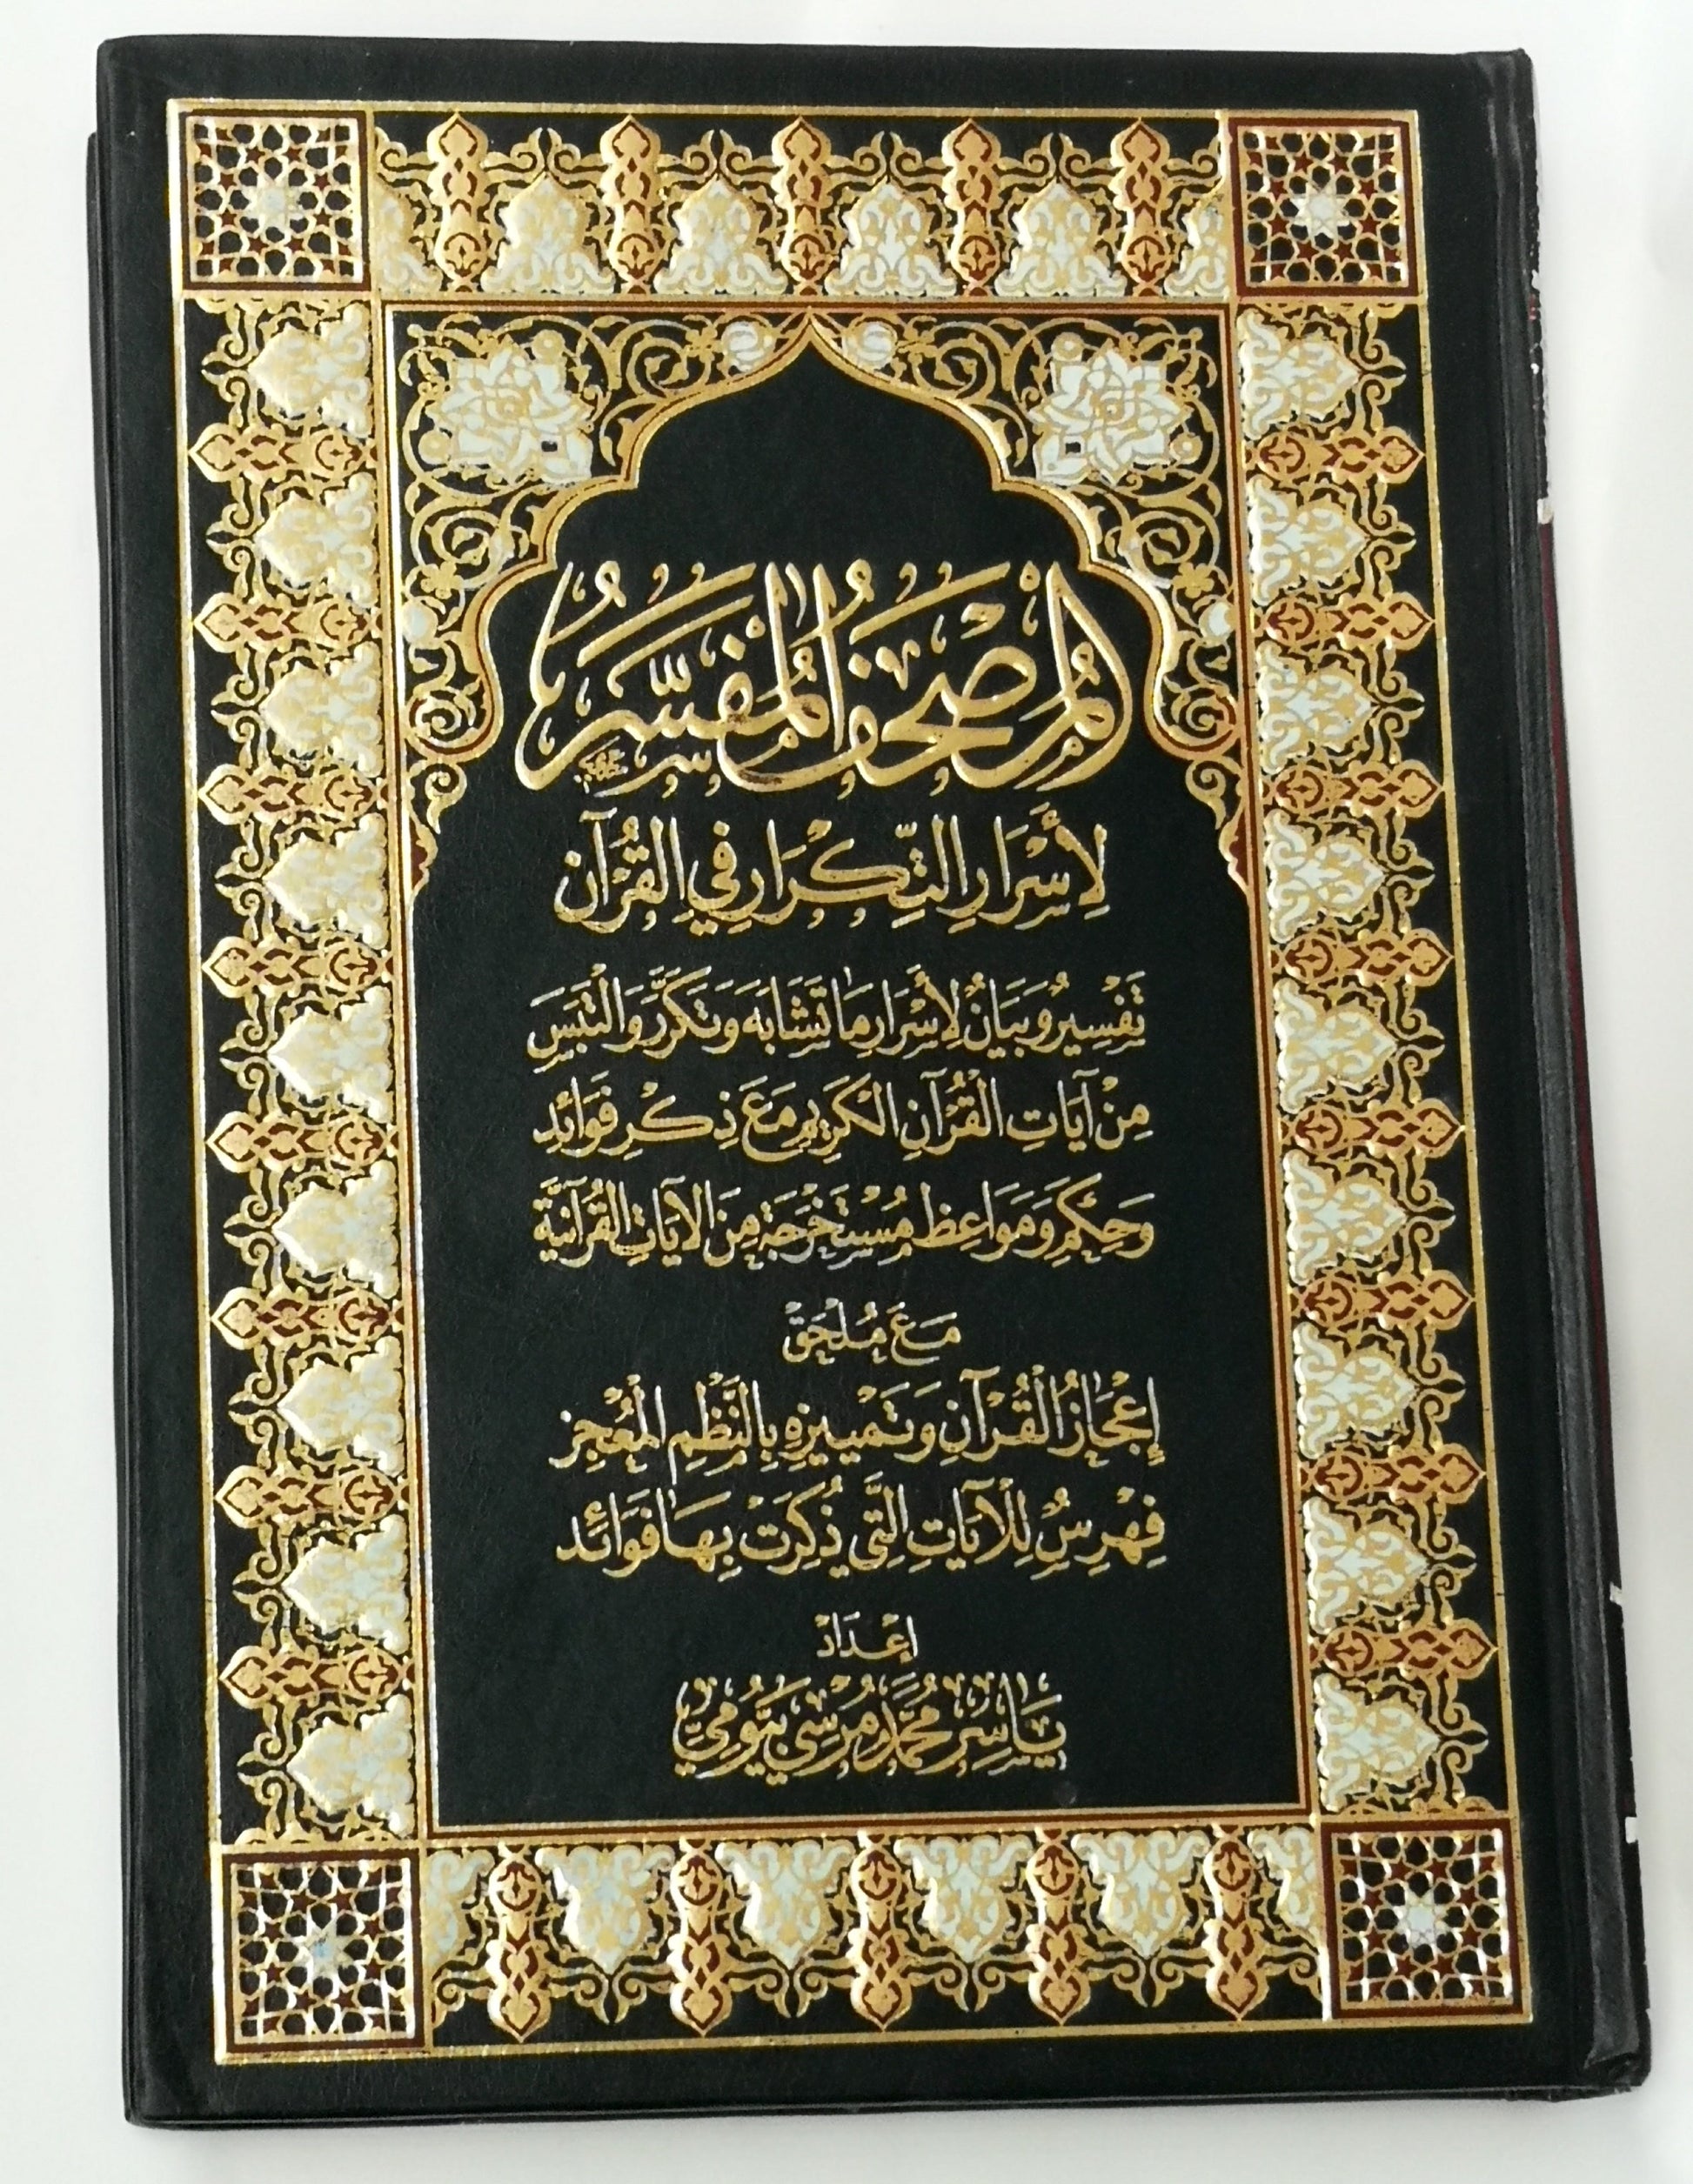 المُصْحَفُ المُفَسِّرُ
لِأَسْرَارِ التِّكْرَارِ فِي القُرْآنِ
تَفْسِيرٌ وَبَيَانٌ لِأَسْرَارِ مَا تَشَابَهَ وَتَكَرَّرَ وَالْتَبَسَ
مِنْ آيَاتِ الْقُرْآنِ الكَرِيمِ مَعَ ذِكْرِ فَوَائِد
وَحِكَمٍ وَمَوَاعِظَ مُسْتَخْرَجَةٍ مِنَ الآيَاتِ القُرْآنِيَّةِ
مَعَ مُلْحَقْ
إِعْجَازُ الْقُرْآنِ وَتَمْيِيزِهِ بِالنَّظْمِ الْمُعْجِزِ
فِهْرِسٌ لِلْآيَاتِ الَّتِي ذُكِرَتْ بِهَا فَوَائِد
إِعْدَادْ
يَاسِر مُحَمَّد مُرْسِي بَيُّومِي